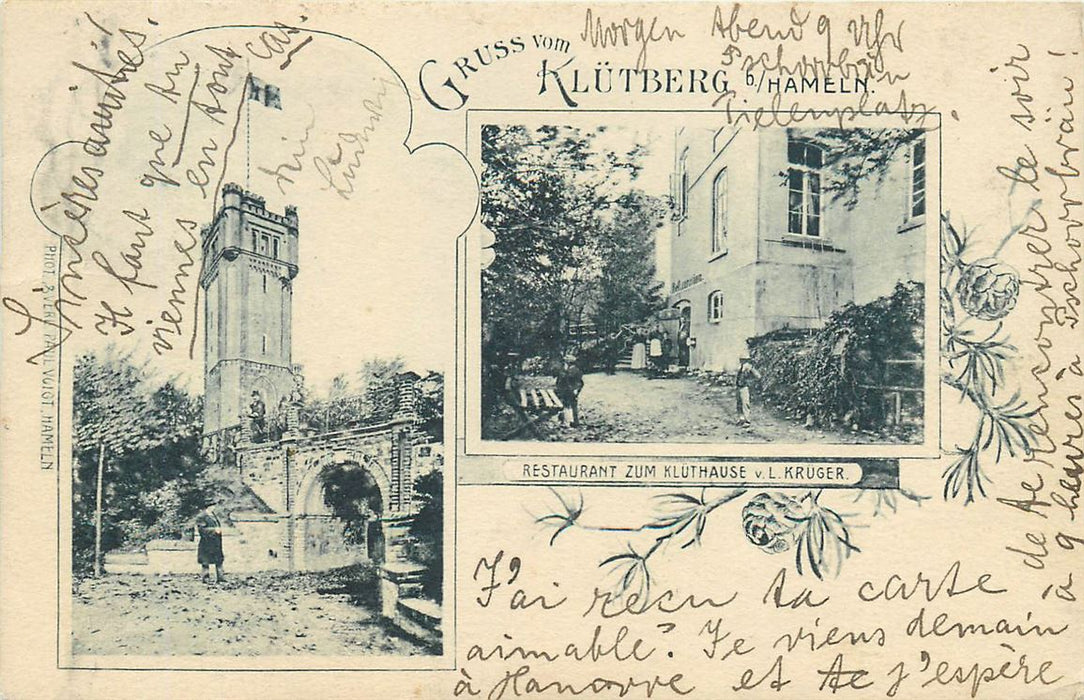 GRUSS vom
KLÜTBERG b/HAMELN.
Morgen Abend 9 Uhr
Tschorrbräu
Tielenplatz.
RESTAURANT ZUM KLÜTHAUSE v. L. KRÜGER.
PHOT. & VERL. PAUL VOIGT, HAMELN
J'ai reçu ta carte
aimable. Je viens demain
à Hanovre et te j'espère
de te rencontrer le soir
à 9 heures à Tschorrbräu!
Sincères amitiés!
Il faut que tu
viennes en tout cas.
Dein
Ludwig